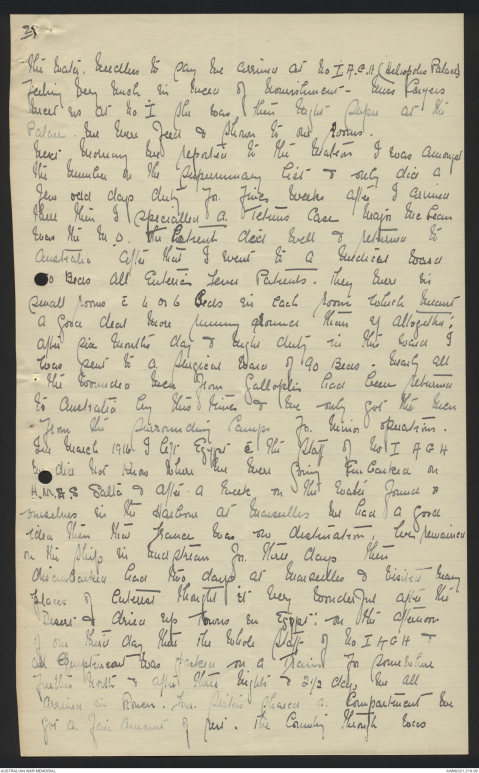 29
the water. Needless to say we arrived at No I A.G.H (Heliopolis Palace)
feeling very much in need of nourishment - Miss Sawyers
meet us at No I she was then Night Super at the
Palace. We were feed & shown to our rooms.
Next morning we reported to the Matron I was amongst
the number on the supernumary list & only did a
few odd days duty for three weeks after I arrived
there then I specialled a tetnus case Major McLean
was the M.O. the patient did well & returned to
Australia after that I went to a Medical Ward
90 Beds all Enteric Fever Patients. They were in
small rooms c 4 or 6 Beds in each room which meant
a good deal more running around than if altogether;
after six months day & night duty in this ward I
was sent to a Surgical Ward of 90 Beds - Nearly all
the wounded men from Gallopli had been returned
to Australia by this time & we only got the men
from the surrounding Camps for minor operations.
In March 1916 I left Egypt c the staff of No I AGH
we did not know where we were going Embarked on
H.M.A S Salta & after a week on the water found
ourselves in the Harbour at Marseilles we had a good
idea then that France was our destination, we remained
on the ship in midstream for three days then
disembarked had two days at Marseilles & visited many
places of interest thought it very wonderful after the
Desert & dried up towns in Egypt: on the afternoon
of our third day there the whole staff of No I AGH &
all equipment was packed on a train for somewhere
further North & after three nights & 2 1/2 days we all
arrived in Rouen. Four Sisters shared a compartment we
got a fair amount of rest. The Country through was
AUSTRALIAN WAR MEMORIAL